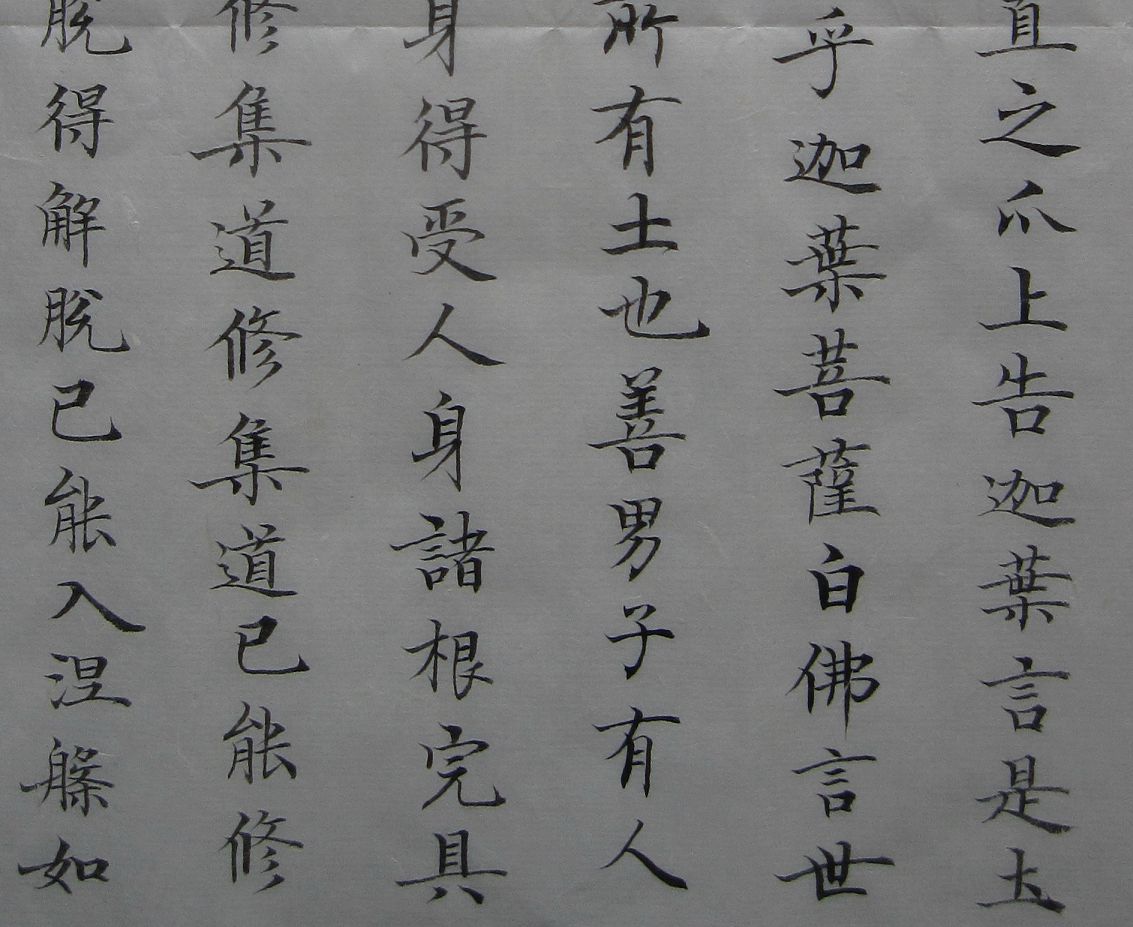 直之爪上告迦葉言是土
乎迦葉菩薩白佛言世
所有土也善男子有人
身得受人身諸根完具
修集道修集道已能修
脫得解脫已能入涅槃如